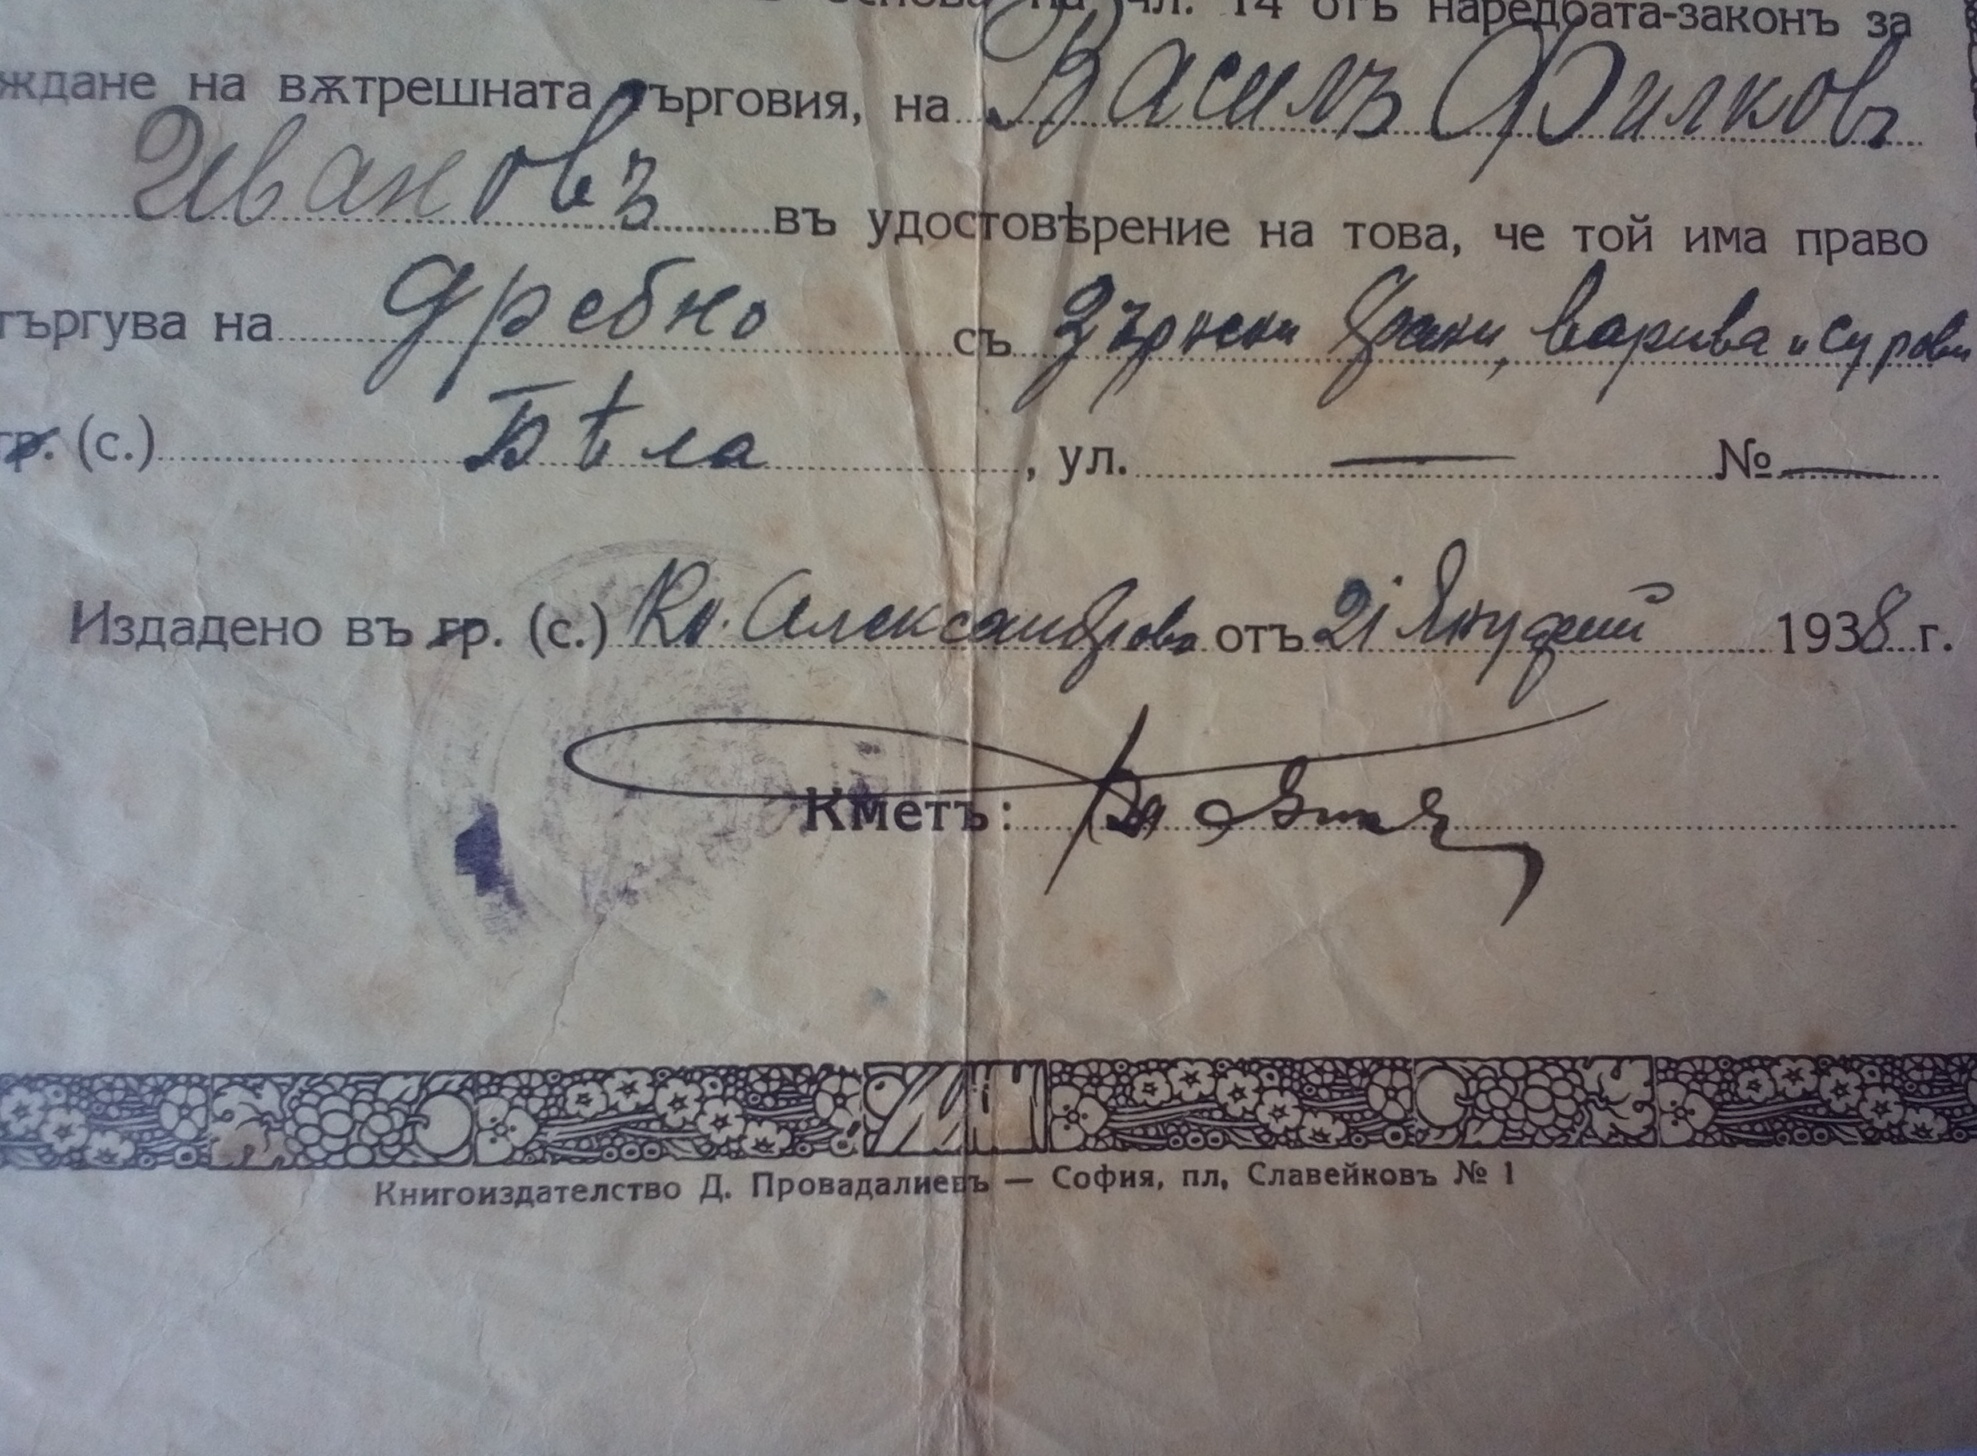 на чл. 14 отъ наредбата-законъ за
ждане на вѫтрешната търговия, на Василъ Филковъ
Ивановъ въ удостовѣрение на това, че той има право
търгува на дребно съ зърнени храни, варива и сурови
гр. (с.) Бѣла, ул. — № —
Издадено въ гр. (с.) Кн. Александрова отъ 21 Януарий 1938 г.
Кметъ:
Книгоиздателство Д. Провадалиевъ — София, пл. Славейковъ № 1